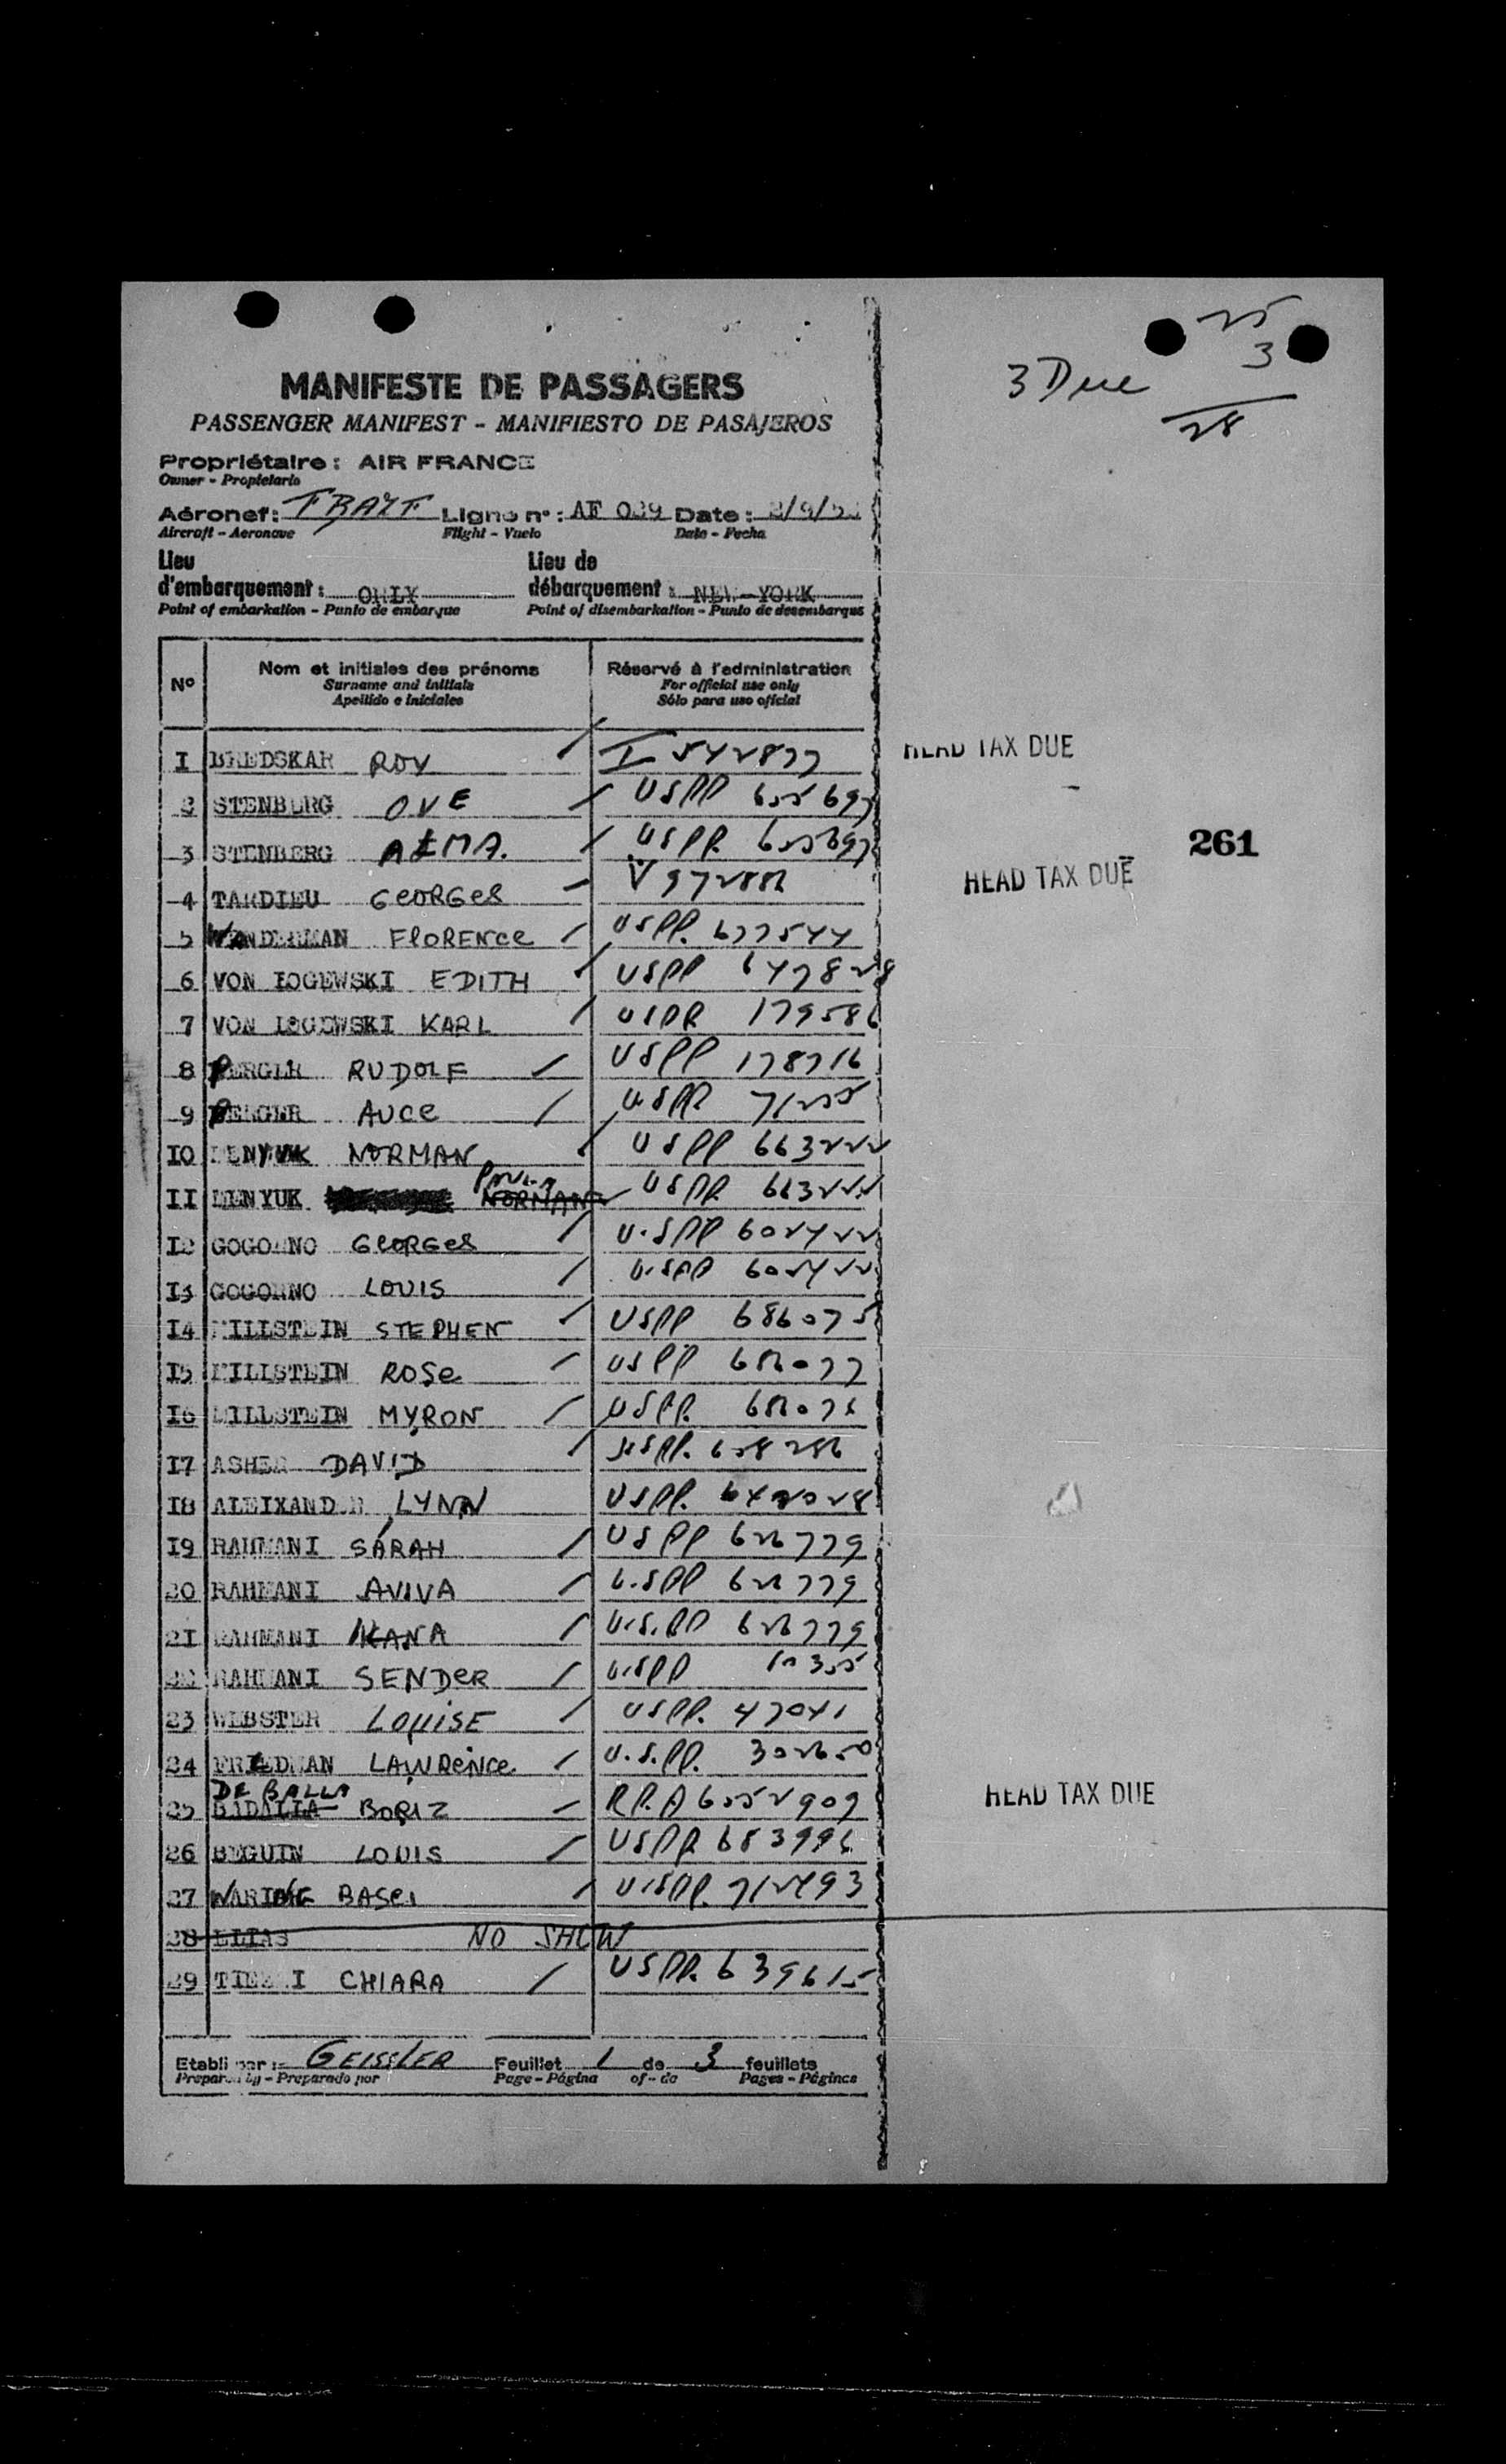 25
3
3 Due
28
MANIFESTE DE PASSAGERS
PASSENGER MANIFEST - MANIFIESTO DE PASAJEROS
Propriétaire : AIR FRANCE
Owner - Propietario
Aéronef : Ligne n° : AF 039 Date : 2/9/5
Aircraft - Aeronave Flight - Vuelo Date - Fecha
Lieu d'embarquement : ORLY Lieu de débarquement : NEW-YORK
Point of embarkation - Punto de embarque Point of disembarkation - Punto de desembarque
N° Nom et initiales des prénoms Réservé à l'administration
Surname and initials For official use only
Apellido e iniciales Sólo para uso oficial
I BREDSKAR ROY I 542877 HEAD TAX DUE
2 STENBERG OVE USPP 655697
3 STENBERG ALMA. USPP. 655697 261
4 TARDIEU GEORGES V 972882 HEAD TAX DUE
5 FLORENCE USPP. 677544
6 VON EDITH USPP 647828
7 VON KARL USPP 179586
8 PERGER RUDOLF USPP 178716
9 PERGER ALICE USPP 71255
IO NORMAN USPP 663222
II LENYUK PAULA NORMAN USPP 663222
I2 GOGORNO GEORGES U.SPP 602422
I3 GOGORNO LOUIS U.SPP 602422
I4 MILLSTEIN STEPHEN USPP 686075
I5 MILLSTEIN ROSE USPP 686077
I6 MILLSTEIN MYRON USPP. 686076
I7 ASHER DAVID USPP. 628286
I8 ALEIXANDER LYNN USPP.
I9 RAHMANI SARAH USPP 626779
20 RAHMANI AVIVA U.SPP 626779
2I RAHMANI U.S.PP 626779
22 RAHMANI SENDER U.SPP
23 WEBSTER LOUISE USPP. 47041
24 FRIEDMAN LAWRENCE U.S.PP. 302650
DE BALLA
25 BADALIA BORIZ R.P.A 6052909 HEAD TAX DUE
26 BEGUIN LOUIS USPP 683996
27 WARING BASEL U.SPP. 712493
28 ELIAS NO SHOW
29 CHIARA USPP. 639615
Etabli par : GEISSLER Feuillet 1 de 3 feuillets
Prepared by - Preparado por Page - Página of - de Pages - Páginas